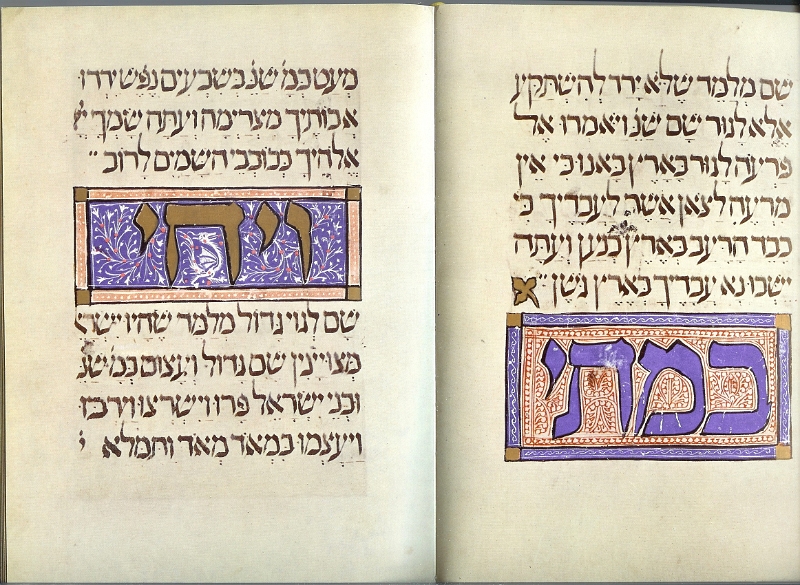 שם מלמד שלא ירד להשתקע
אלא לגור שם שנ' ויאמרו אל
פרעה לגור בארץ באנו כי אין
מרעה לצאן אשר לעבדיך כי
כבד הרעב בארץ כנען ועתה
ישבו נא עבדיך בארץ גשן
במתי
מעט כמ' שנ' בשבעים נפש ירדו
אבותיך מצרימה ועתה שמך
אלהיך ככוכבי השמים לרוב
ויהי
שם לגוי גדול מלמד שהיו ישר
מצויינין שם גדול ועצום כמ' שנ'
ובני ישראל פרו וישרצו וירבו
ויעצמו במאד מאד ותמלא